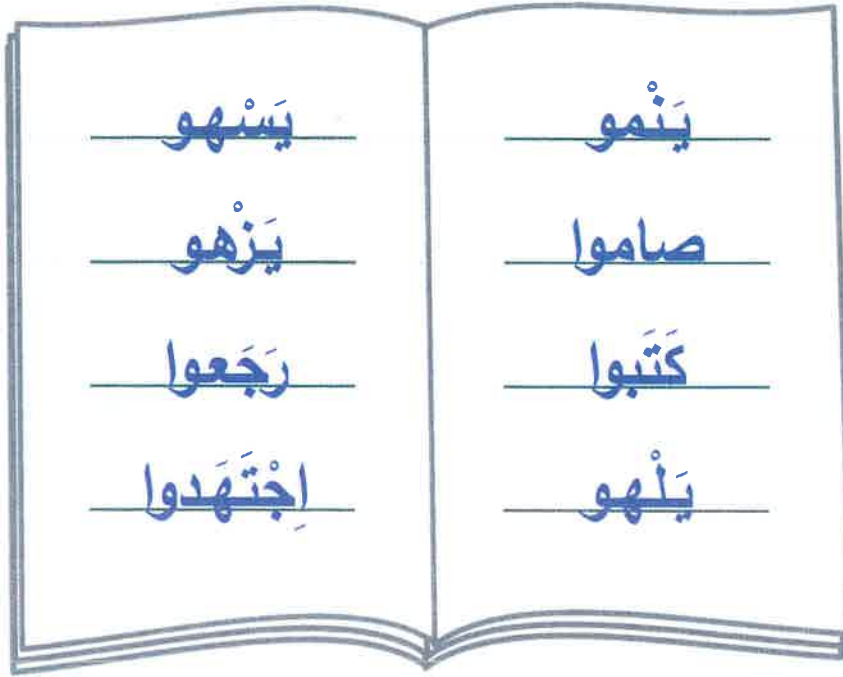 يَنْمو
صاموا
كَتَبوا
يَلْهو
يَسْهو
يَزْهو
رَجَعوا
اِجْتَهَدوا